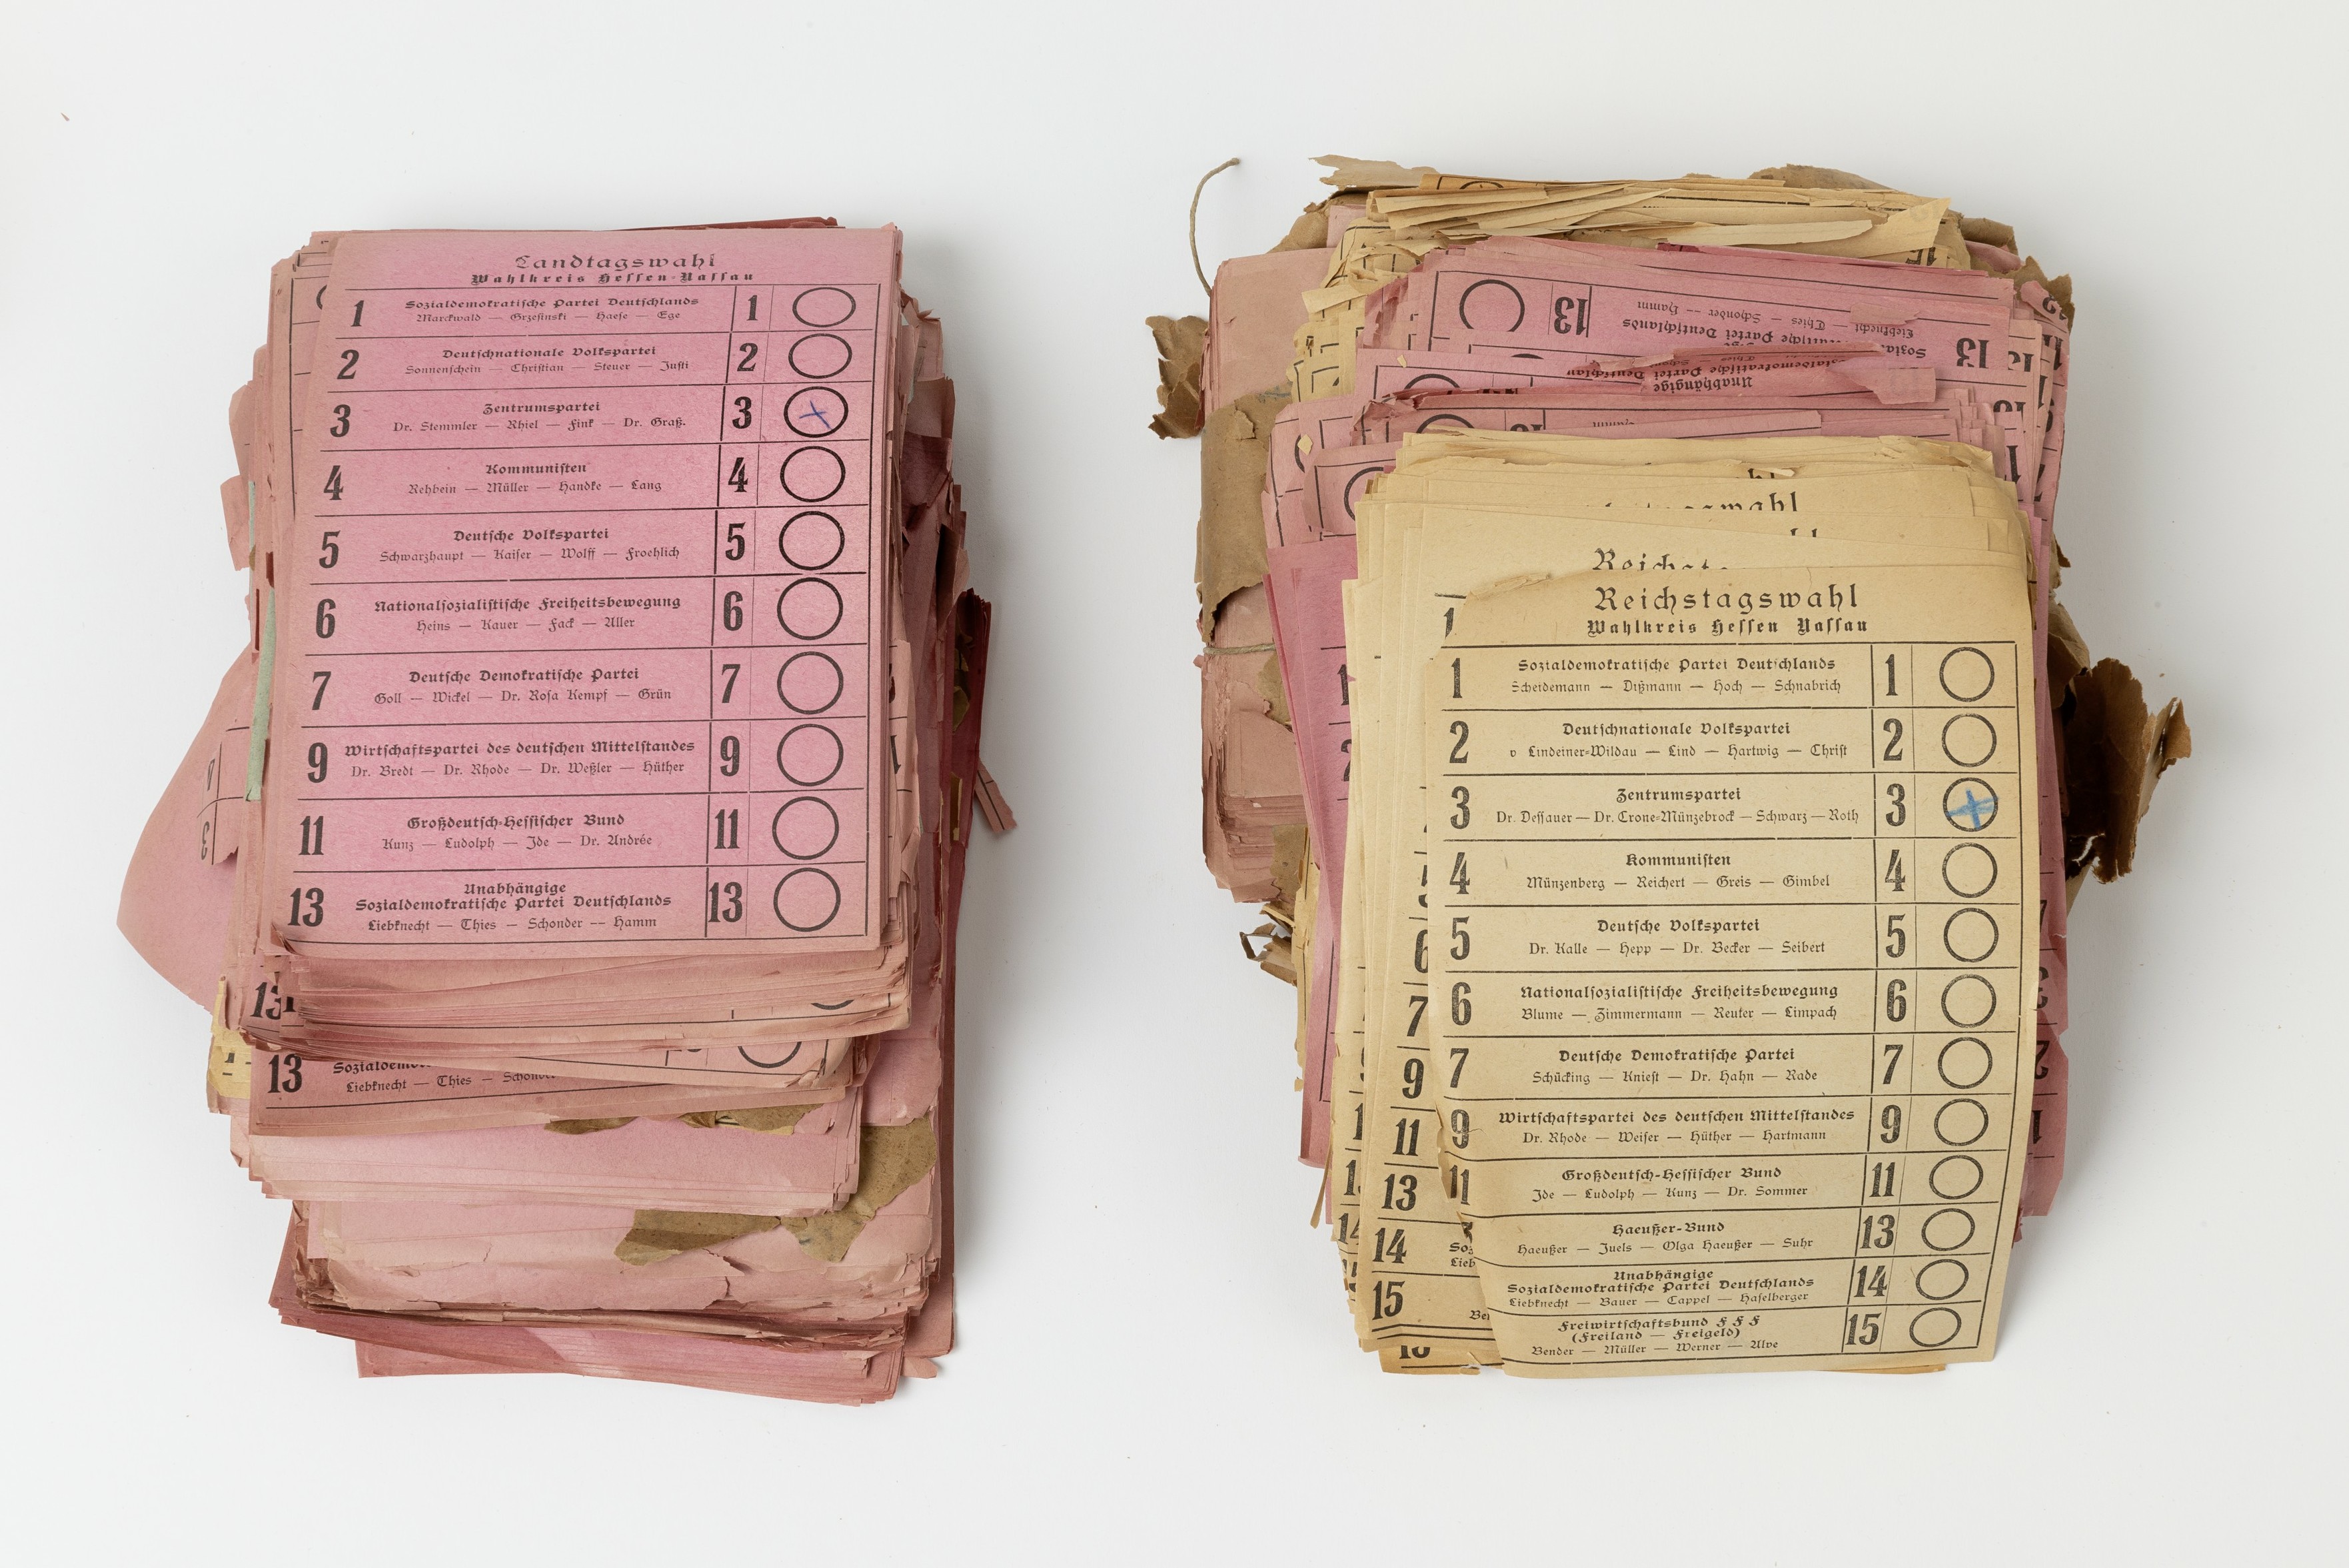 Landtagswahl
Wahlkreis Hessen-Nassau
1 Sozialdemokratische Partei Deutschlands 1
Marckwald — Grzesinski — Haese — Ege
2 Deutschnationale Volkspartei 2
Sonnenschein — Christian — Steuer — Justi
3 Zentrumspartei 3
Dr. Stemmler — Rhiel — Fink — Dr. Graß.
4 Kommunisten 4
Rehbein — Müller — Handke — Lang
5 Deutsche Volkspartei 5
Schwarzhaupt — Kaiser — Wolff — Froehlich
6 Nationalsozialistische Freiheitsbewegung 6
Heins — Kauer — Fack — Aller
7 Deutsche Demokratische Partei 7
Goll — Wickel — Dr. Rosa Kempf — Grün
9 Wirtschaftspartei des deutschen Mittelstandes 9
Dr. Bredt — Dr. Rhode — Dr. Weßler — Hüther
11 Großdeutsch-Hessischer Bund 11
Kunz — Ludolph — Ide — Dr. Andrée
13 Unabhängige 13
Sozialdemokratische Partei Deutschlands
Liebknecht — Thies — Schonder -- Hamm
13
13
Liebknecht — Thies —
13 Liebknecht — Thies — Schonder — Hamm 13
Unabhängige
Reichstagswahl
Wahlkreis Hessen Nassau
1 Sozialdemokratische Partei Deutschlands 1
Scheidemann — Dißmann — Hoch — Schnabrich
2 Deutschnationale Volkspartei 2
v Lindeiner-Wildau — Lind — Hartwig — Christ
3 Zentrumspartei 3
Dr. Dessauer — Dr. Crone-Münzebrock — Schwarz — Roth
4 Kommunisten 4
Münzenberg — Reichert — Greis — Gimbel
5 Deutsche Volkspartei 5
Dr. Kalle — Hepp — Dr. Becker — Seibert
6 Nationalsozialistische Freiheitsbewegung 6
Blume — Zimmermann — Reuter — Limpach
7 Deutsche Demokratische Partei 7
Schücking — Kniest — Dr. Hahn — Rade
9 Wirtschaftspartei des deutschen Mittelstandes 9
Dr. Rhode — Weiser — Hüther — Hartmann
11 Großdeutsch-Hessischer Bund 11
Ide — Ludolph — Kunz — Dr. Sommer
Haeußer-Bund 13
Haeußer — Juels — Olga Haeußer — Suhr
Unabhängige 14
Sozialdemokratische Partei Deutschlands
Liebknecht — Bauer — Cappel — Haselberger
Freiwirtschaftsbund F F F 15
(Freiland — Freigeld)
Bender — Müller — Werner — Alve
7
9
11
13
14
15